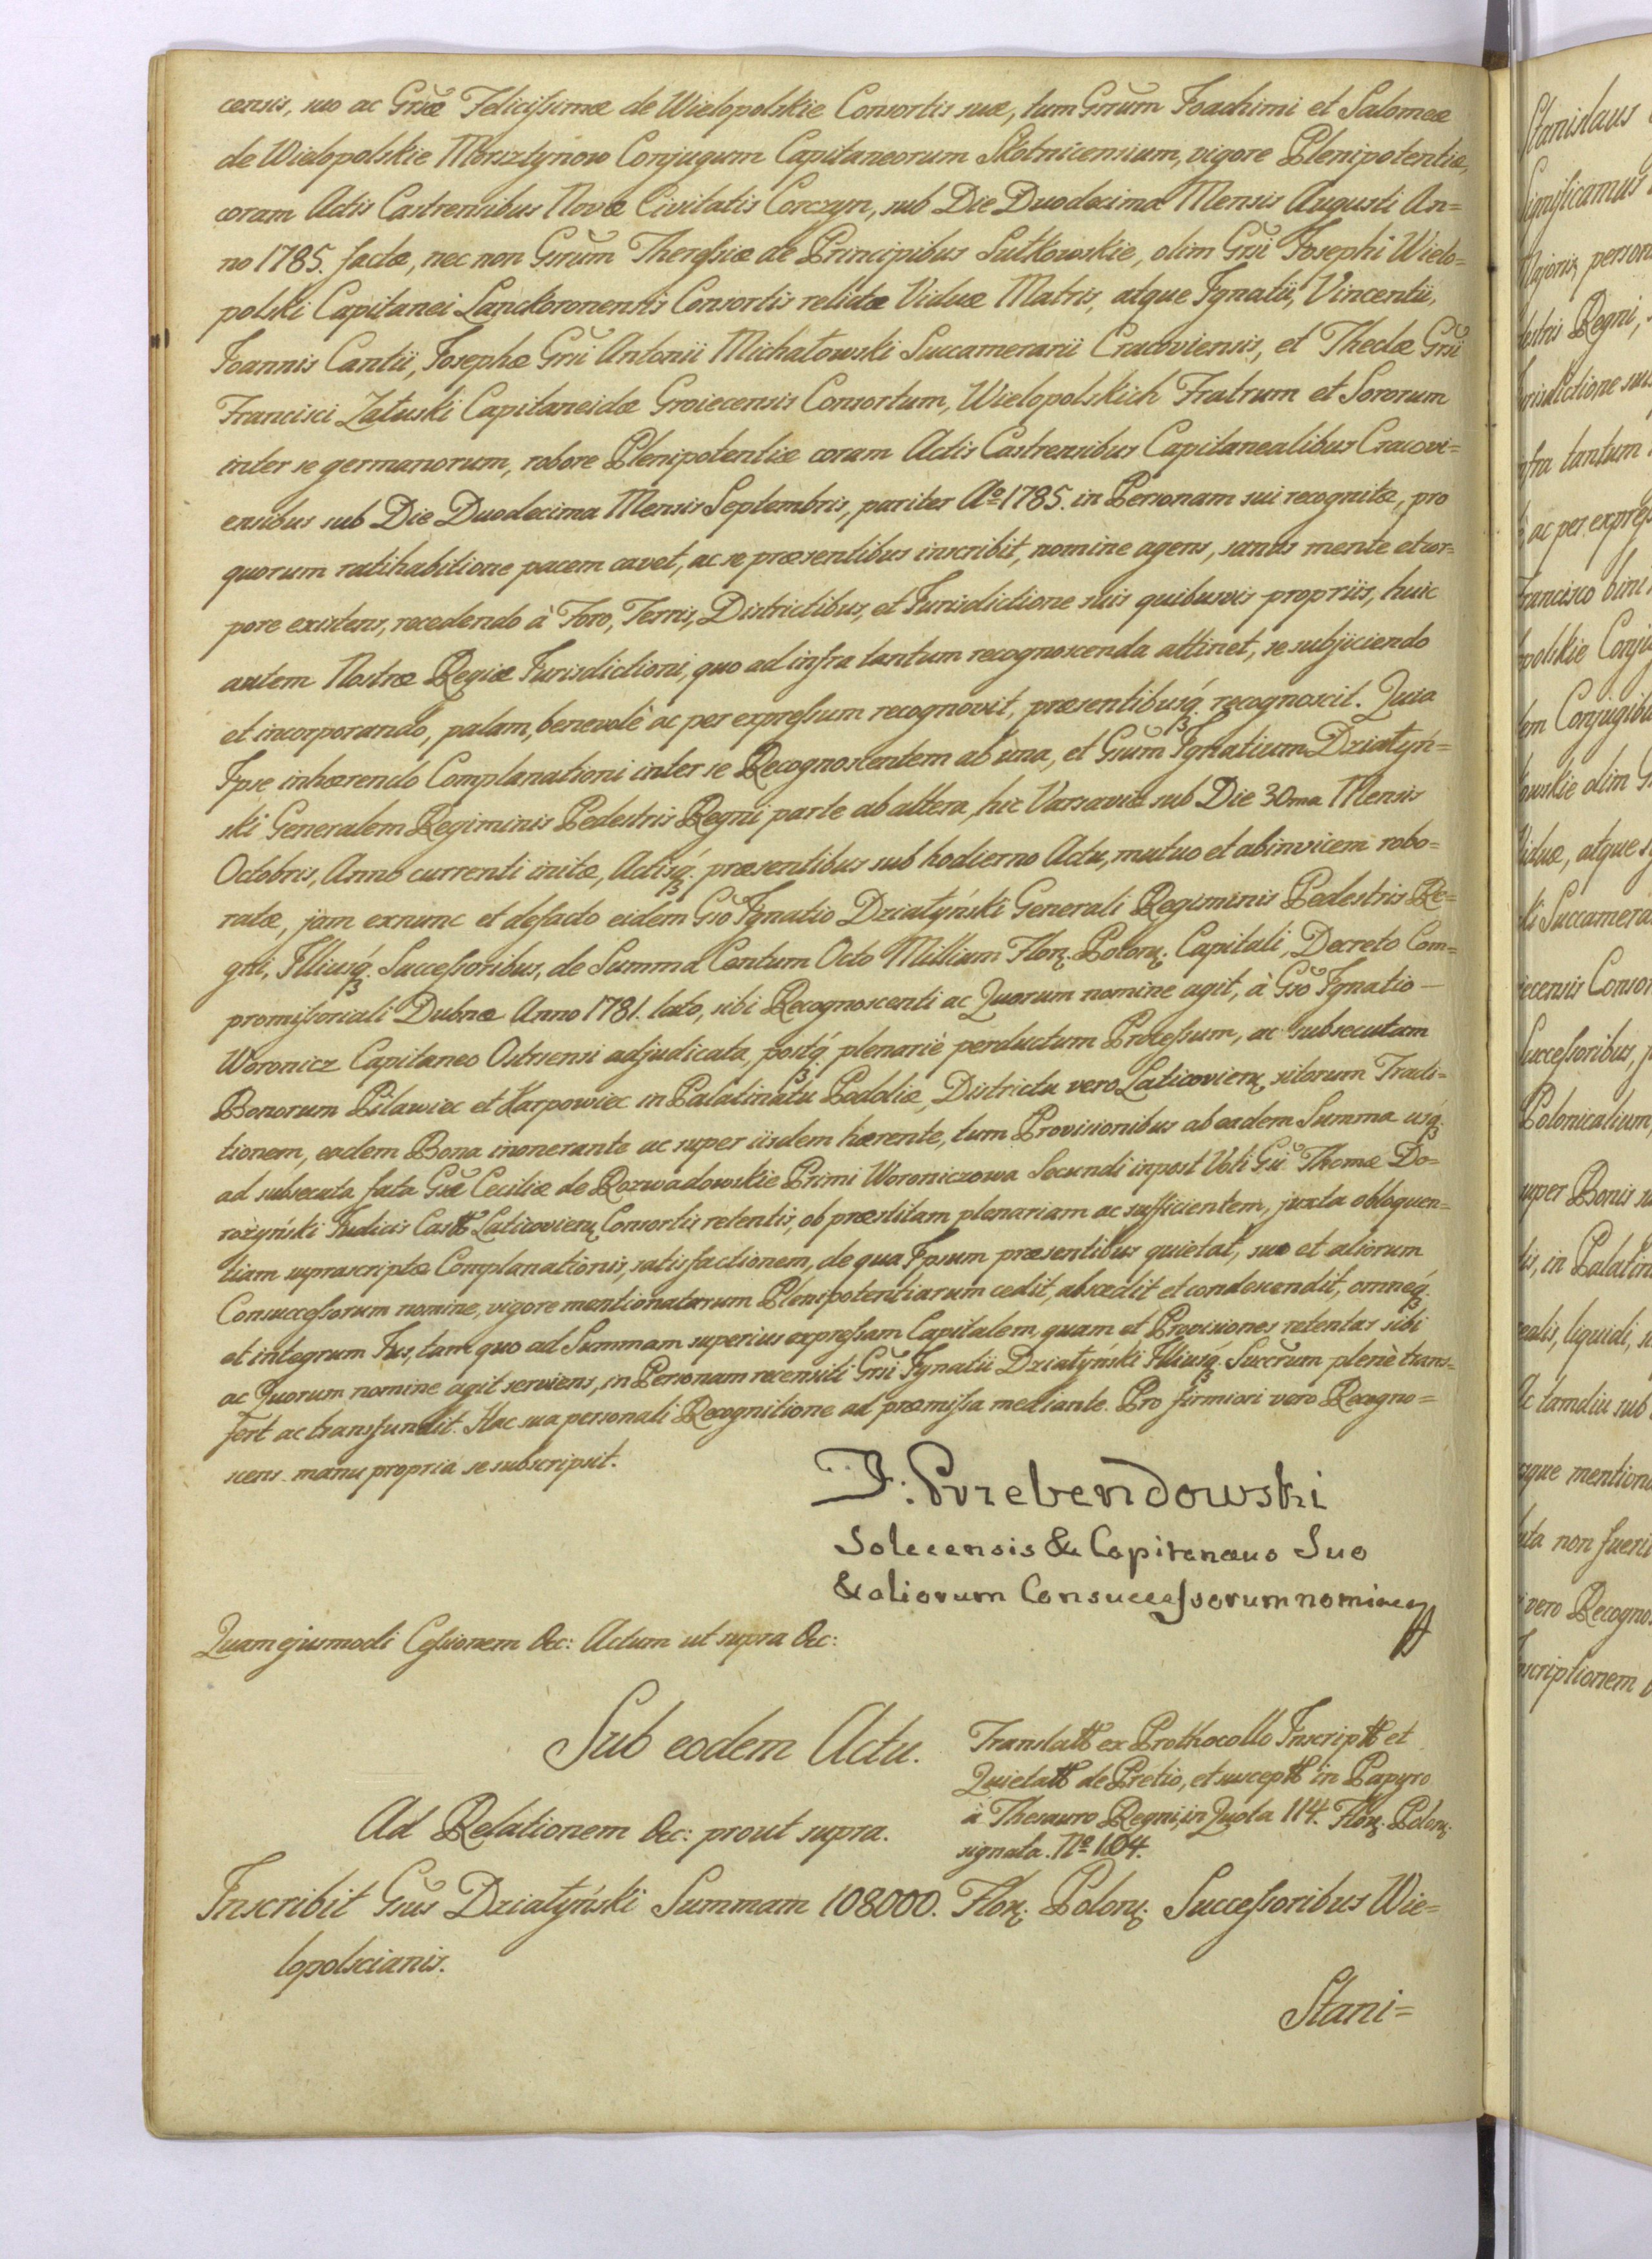 censis, suo ac Grsæ Felicissimæ de Wielopolskie Consortis suæ, tum Grsum Joachimi et Salomeæ
de Wielopolskie Morsztynow Conjugum Capitaneorum Skotnicensium, vigore Plenipotentiæ,
coram Actis Castrensibus Novæ Civitatis Corczyn, sub Die Duodecima Mensis Augusti An=
no 1785. factæ, nec non Grsum Theressiæ de Principibus Sułkowskie, olim Grsi Josephi Wielo=
polski Capitanei Lanckoronensis Consortis relictæ Viduæ Matris, atque Ignatii, Vincentii,
Joannis Cantii, Josephæ Grsi Antonii Michałowski Succamerarii Cracoviensis, et Theclæ Grsi
Francisci Załuski Capitaneidæ Groiecensis Consortum, Wielopolskich Fratrum et Sororum
inter se germanorum, robore Plenipotentiæ coram Actis Castrensibus Capitanealibus Cracovi=
ensibus sub Die Duodecima Mensis Septembris, pariter Aº 1785. in Personam sui recognitæ, pro
quorum ratihabitione pacem cavet, ac se præsentibus inscribit, nomine agens, sanus mente et cor=
pore existens, recedendo à Foro, Terris, Districtibus, et Jurisdictione suis quibusvis propriis, huic
autem Nostræ Regiæ Jurisdictioni, quo ad infra tantum recognoscenda attinet, se subjiciendo
et incorporando, palam, benevolè ac per expressum recognovit, præsentibusq́. recognoscit. Quia
Ipse inhærendo Complanationi inter se Recognoscentem ab una, et Grsum Ignatium Działyń=
ski Generalem Regiminis Pedestris Regni parte ab altera, hic Varsaviæ sub Die 30ma Mensis
Octobris, Anno currenti initæ, Actisq́. præsentibus sub hodierno Actu, mutuo et abinvicem robo=
ratæ, jam exnunc et defacto eidem Gso Ignatio Działyński Generali Regiminis Pedestris Re=
gni, Illiusq́. Successoribus, de Summa Centum Octo Millium Flor. Polon. Capitali, Decreto Com=
promissoriali Dubnæ Anno 1781. lato, sibi Recognoscenti ac Quorum nomine agit, à Gso Ignatio
Woronicz Capitaneo Ostrsensi adjudicata, postq́. plenariè perductum Processum, ac subsecutam
Bonorum Pilawiec et Karpowiec in Palatinatu Podoliæ, Districtu vero Laticovien. sitorum Tradi=
tionem, eadem Bona inonerante ac super iisdem hærente, tum Provisionibus ab eadem Summa usq́.
ad subsecuta fata Gsæ Ceciliæ de Rozwadowskie Primi Woroniczowa Secundi inpost Voti Gsi Thomæ Do=
rożyński Judicis Castr Laticovien. Consortis retentis, ob præstitam plenariam ac sufficientem, juxta obloquen=
tiam suprascriptæ Complanationis, satisfactionem, de qua Ipsum præsentibus quietat, suo et aliorum
Consuccessorum nomine, vigore mentionatarum Plenipotentiarum cedit, abscedit et condescendit, omneq́.
et integrum Jus, tam quo ad Summam superius expressam Capitalem, quam et Provisiones retentas sibi
ac Quorum nomine agit serviens, in Personam recensiti Grsi Ignatii Działyński Illiusq́. Succrum plenè trans=
fert ac transfundit. Hac sua personali Recognitione ad præmissa mediante. Pro firmiori vero Recogno=
scens manu propria se subscripsit.
J: Przebendowski
Solecensis & Capitanæus Suo
& aliorum Consuccessorum nomine
Quam ejusmodi Cessionem &c: Actum ut supra &c:
Sub eodem Actu.
Translatt ex Prothocollo Inscriptt et
Quietatt de Pretio, et susceptt in Papyro
à Thesauro Regni, in Quota 114. Flor. Polon.
signata. Nº 104.
Ad Relationem &c: prout supra.
Inscribit Gsus Działyński Summam 108000. Flor. Polon. Successoribus Wie=
lopolscianis.
Stani=